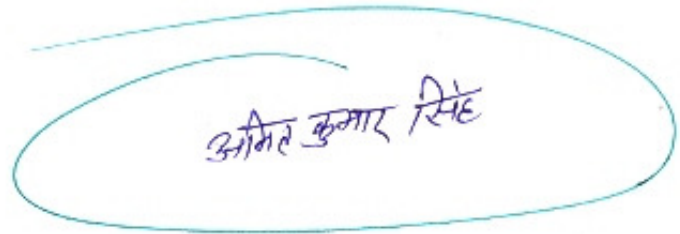 अमित कुमार सिंह